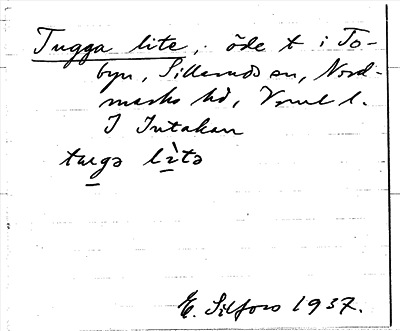 Tugga lite, öde t i To-
byn, Silleruds sn, Nord-
marks hd, Vrml l.
I Intakan
tuga lìtə
E. Silfors 1937.